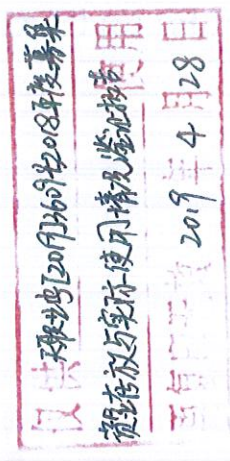 仅供天职业字[2019]23609号2018年度募集
资金存放与实际使用情况鉴证报告使用
2019年4月28日